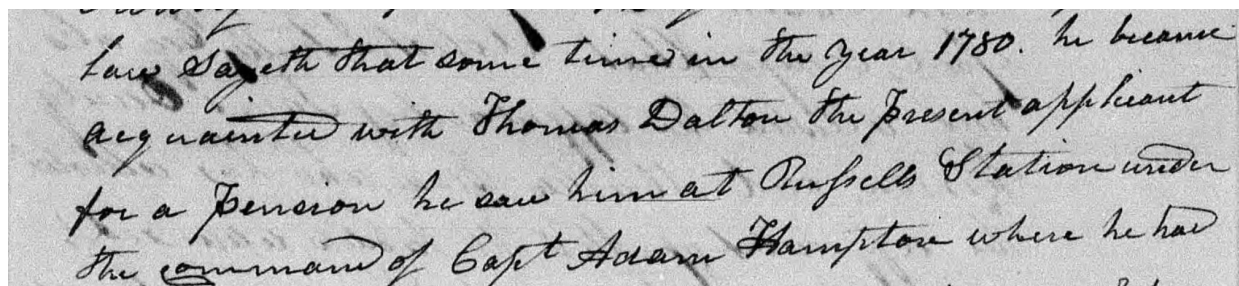 law Sayeth that some time in the year 1780. he became
acquainted with Thomas Dalton the present applicant
for a pension he saw him at Russells Station under
the command of Capt Adam Hampton where he had